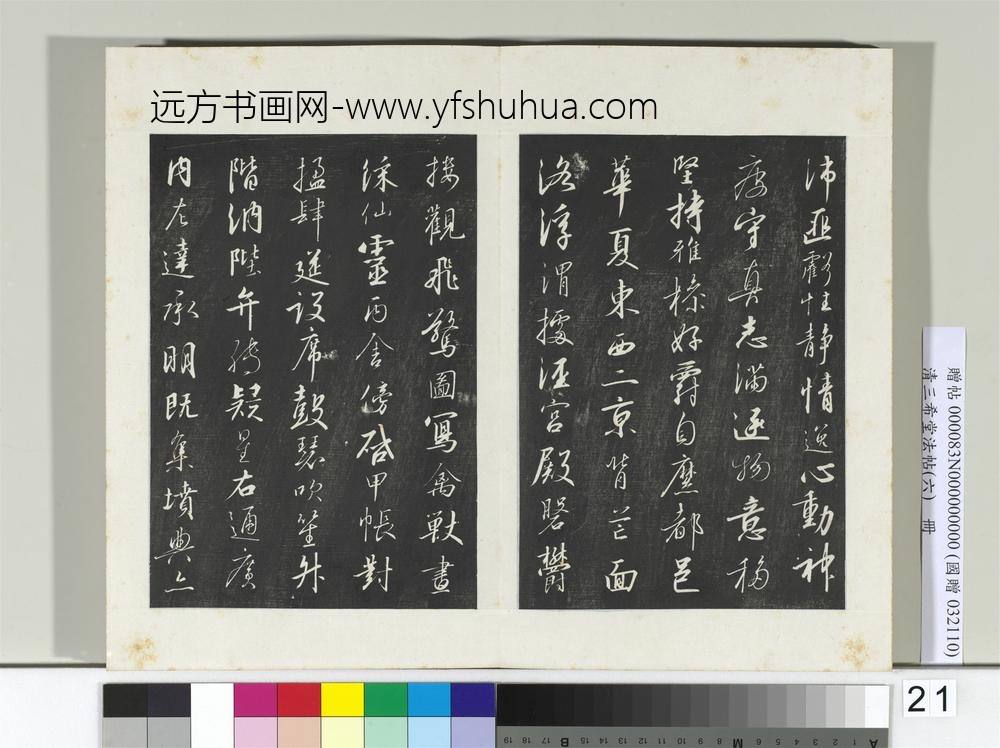 远方书画网-www.yfshuhua.com
沛匪虧性静情逸心動神
疲守真志滿逐物意移
堅持雅操好爵自縻都邑
華夏東西二京背芒面
洛浮渭據涇宮殿盤鬱
樓觀飛驚圖寫禽獸畫
綵仙靈丙舍傍啓甲帳對
楹肆筵設席鼓瑟吹笙升
階納陛弁轉疑星右通廣
内左達承明既集墳典亦
贈帖 000083N000000000 (國贈 032110)
清三希堂法帖(六) 冊
21